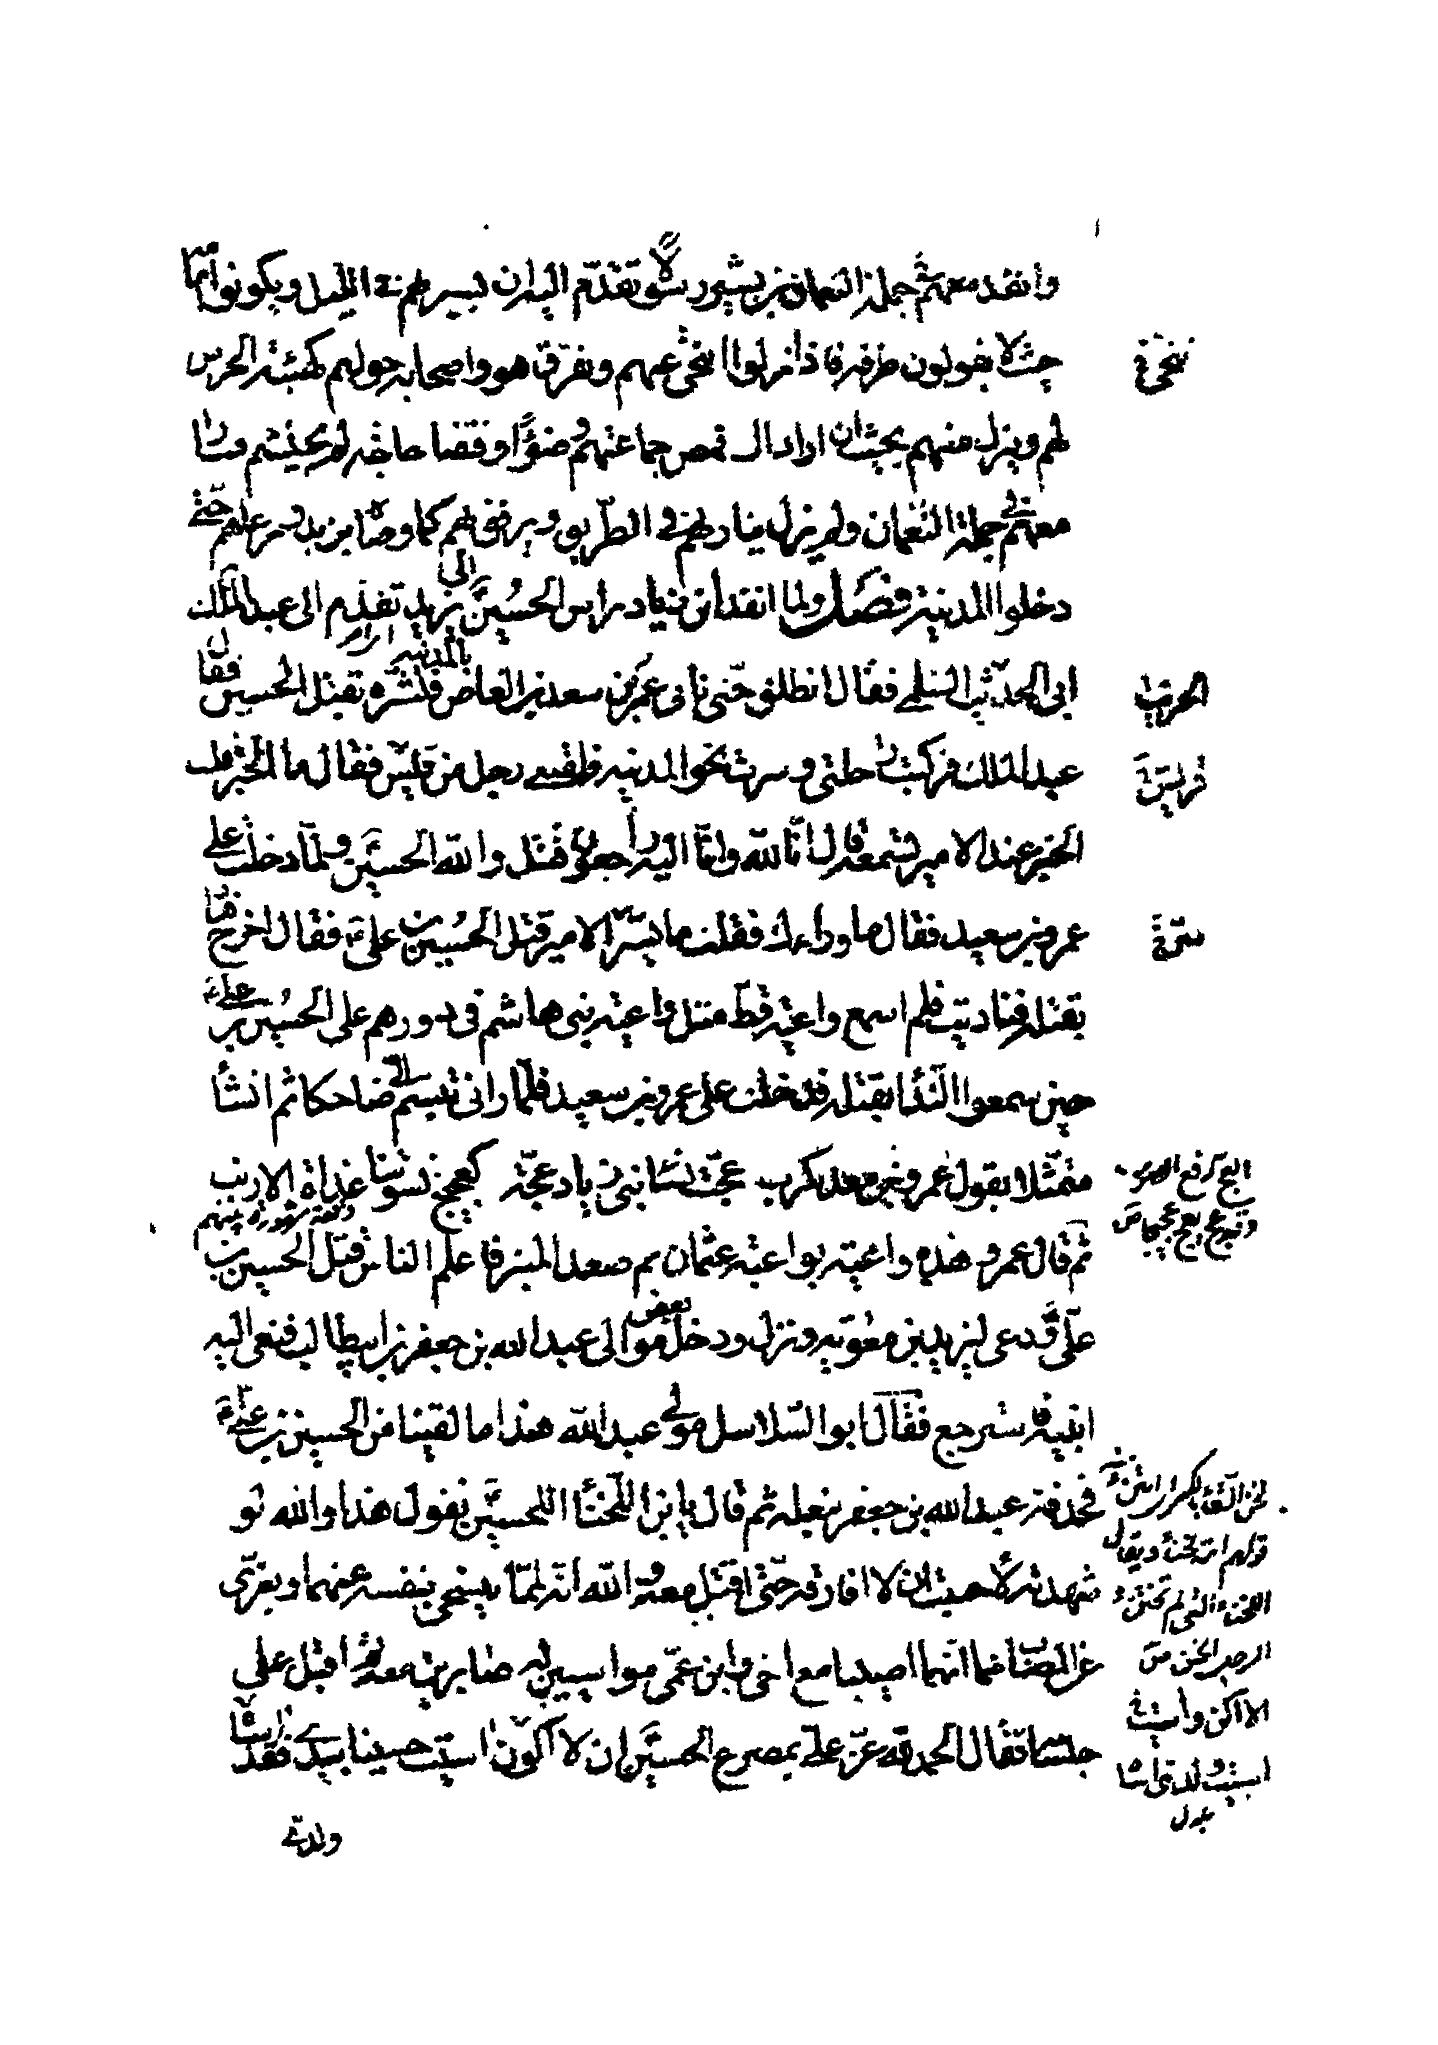 وانفذ معهم في جملة النعمان بن بشير رسولا تقدم اليه ان يسير بهم في الليل ويكونوا امامه
حيث لا يفوتون طرفه فاذا نزلوا انتحى عنهم وتفرق هو واصحابه حولهم كهيئة الحرس
لهم وينزل منهم بحيث ان اراد انسان من جماعتهم وضوءا وقضاء حاجة لم يحتشم فسار
معهم في جملة النعمان ولم يزل ينازلهم في الطريق ويرفق بهم كما وصاه يزيد ويرعاهم حتى
دخلوا المدينة فصل ولما انفذ ابن زياد براس الحسين ع الى يزيد تقدم الى عبد الملك
ابن ابي الحديث السلمي فقال انطلق حتى تاتي عمرو بن سعيد بن العاص بالمدينة فبشره بقتل الحسين فقال
عبد الملك فركبت راحلتي وسرت نحو المدينة فلقيني رجل من قريش فقال ما الخبر فقلت
الخبر عند الامير تسمعه قال انا لله وانا اليه راجعون قتل والله الحسين ع ولما دخلت على
عمرو بن سعيد فقال ما وراءك فقلت ما يسر الامير قتل الحسين بن علي ع فقال اخرج فناد
بقتله فناديت فلم اسمع واعية قط مثل واعية بني هاشم في دورهم على الحسين بن علي ع
حين سمعوا النداء بقتله فدخلت على عمرو بن سعيد فلما راني تبسم الي ضاحكا ثم انشا
متمثلا بقول عمرو بن معديكرب عجت نساء بني زياد عجة كعجيج نسوتنا غداة الارنب
وقعة مشهورة بينهم
ثم قال عمرو هذه واعية بواعية عثمان ثم صعد المنبر فاعلم الناس قتل الحسين بن
علي ع ودعى ليزيد بن معوية ونزل ودخل بعض موالي عبد الله بن جعفر بن ابيطالب فنعى اليه
ابنيه فاسترجع فقال ابو السلاسل مولى عبد الله هذا ما لقينا من الحسين بن علي ع
فحذفه عبد الله بن جعفر بنعله ثم قال يا بن اللخناء اللحسين ع تقول هذا والله لو
شهدته لاحببت ان لا افارقه حتى اقتل معه والله انه لمما يسخي بنفسي عنهما ويعزي
عن المصاب بهما انهما اصيبا مع اخي وابن عمي مواسيين له صابرين معه ثم اقبل على
جلسائه فقال الحمد لله عز علي بمصرع الحسين ع ان لا اكون اسيت حسينا بيدي فقد اساه
ولدي
ينتحى خ
الحرث
قريش خ
سرخ
العج رفع الصوت
وقد عج يعج عجيجا ص
لخن السقاء بالكسر اي انتن ومنه
قولهم امة لخناء ويقال
اللخناء التي لم تختن
الا اكن واسيت خ
اسيته ولدي اساه
بدل